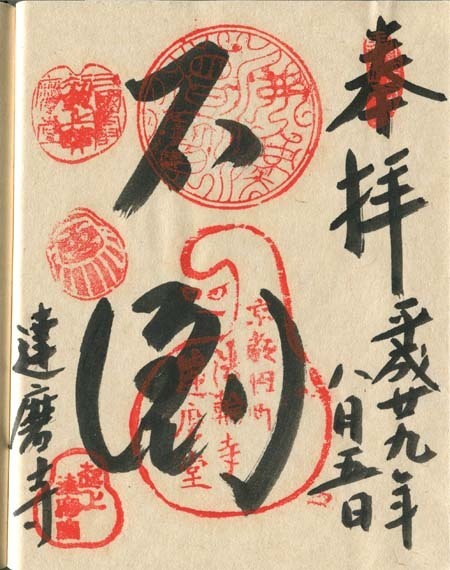 奉拝
平成廿九年
八月五日
不倒
京都円町
法輪寺
達磨堂
達磨寺